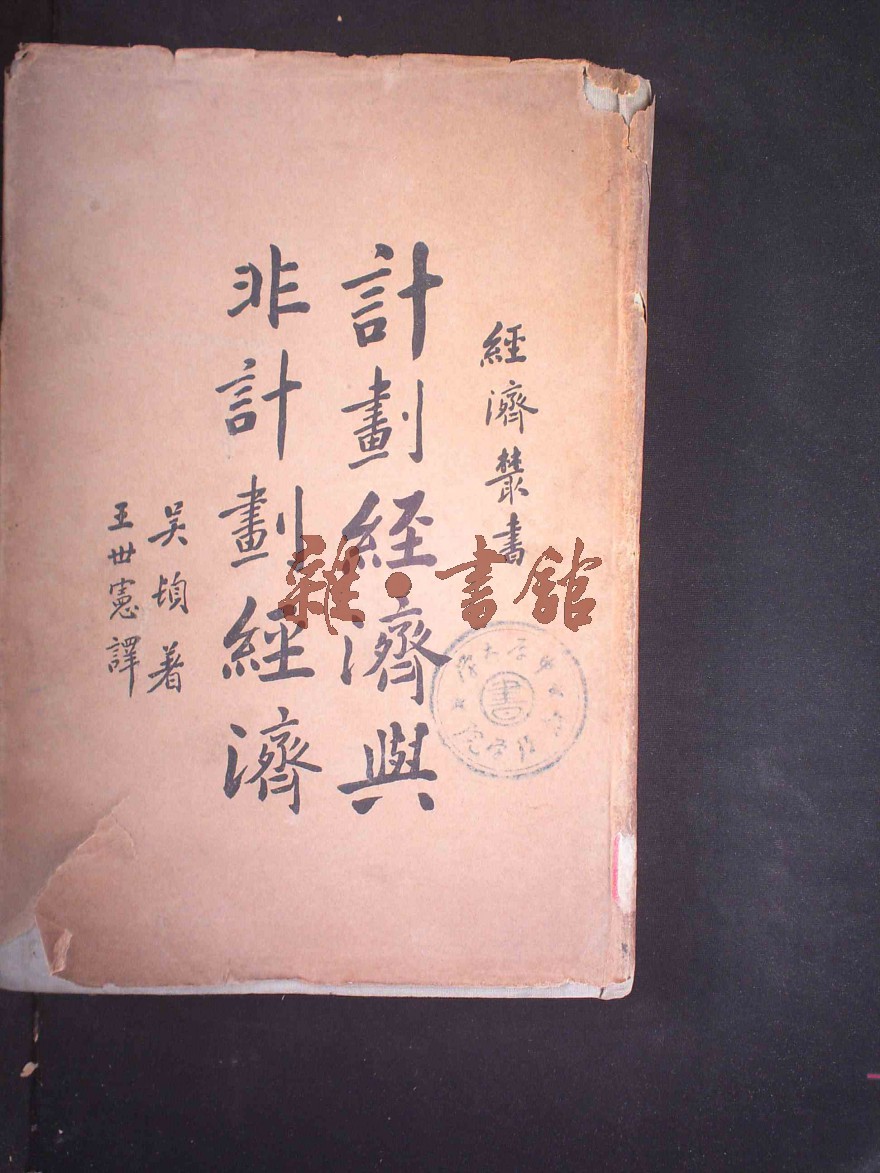 經濟叢書
計劃經濟與
非計劃經濟
吳頓著
王世憲譯
雜·書館
書